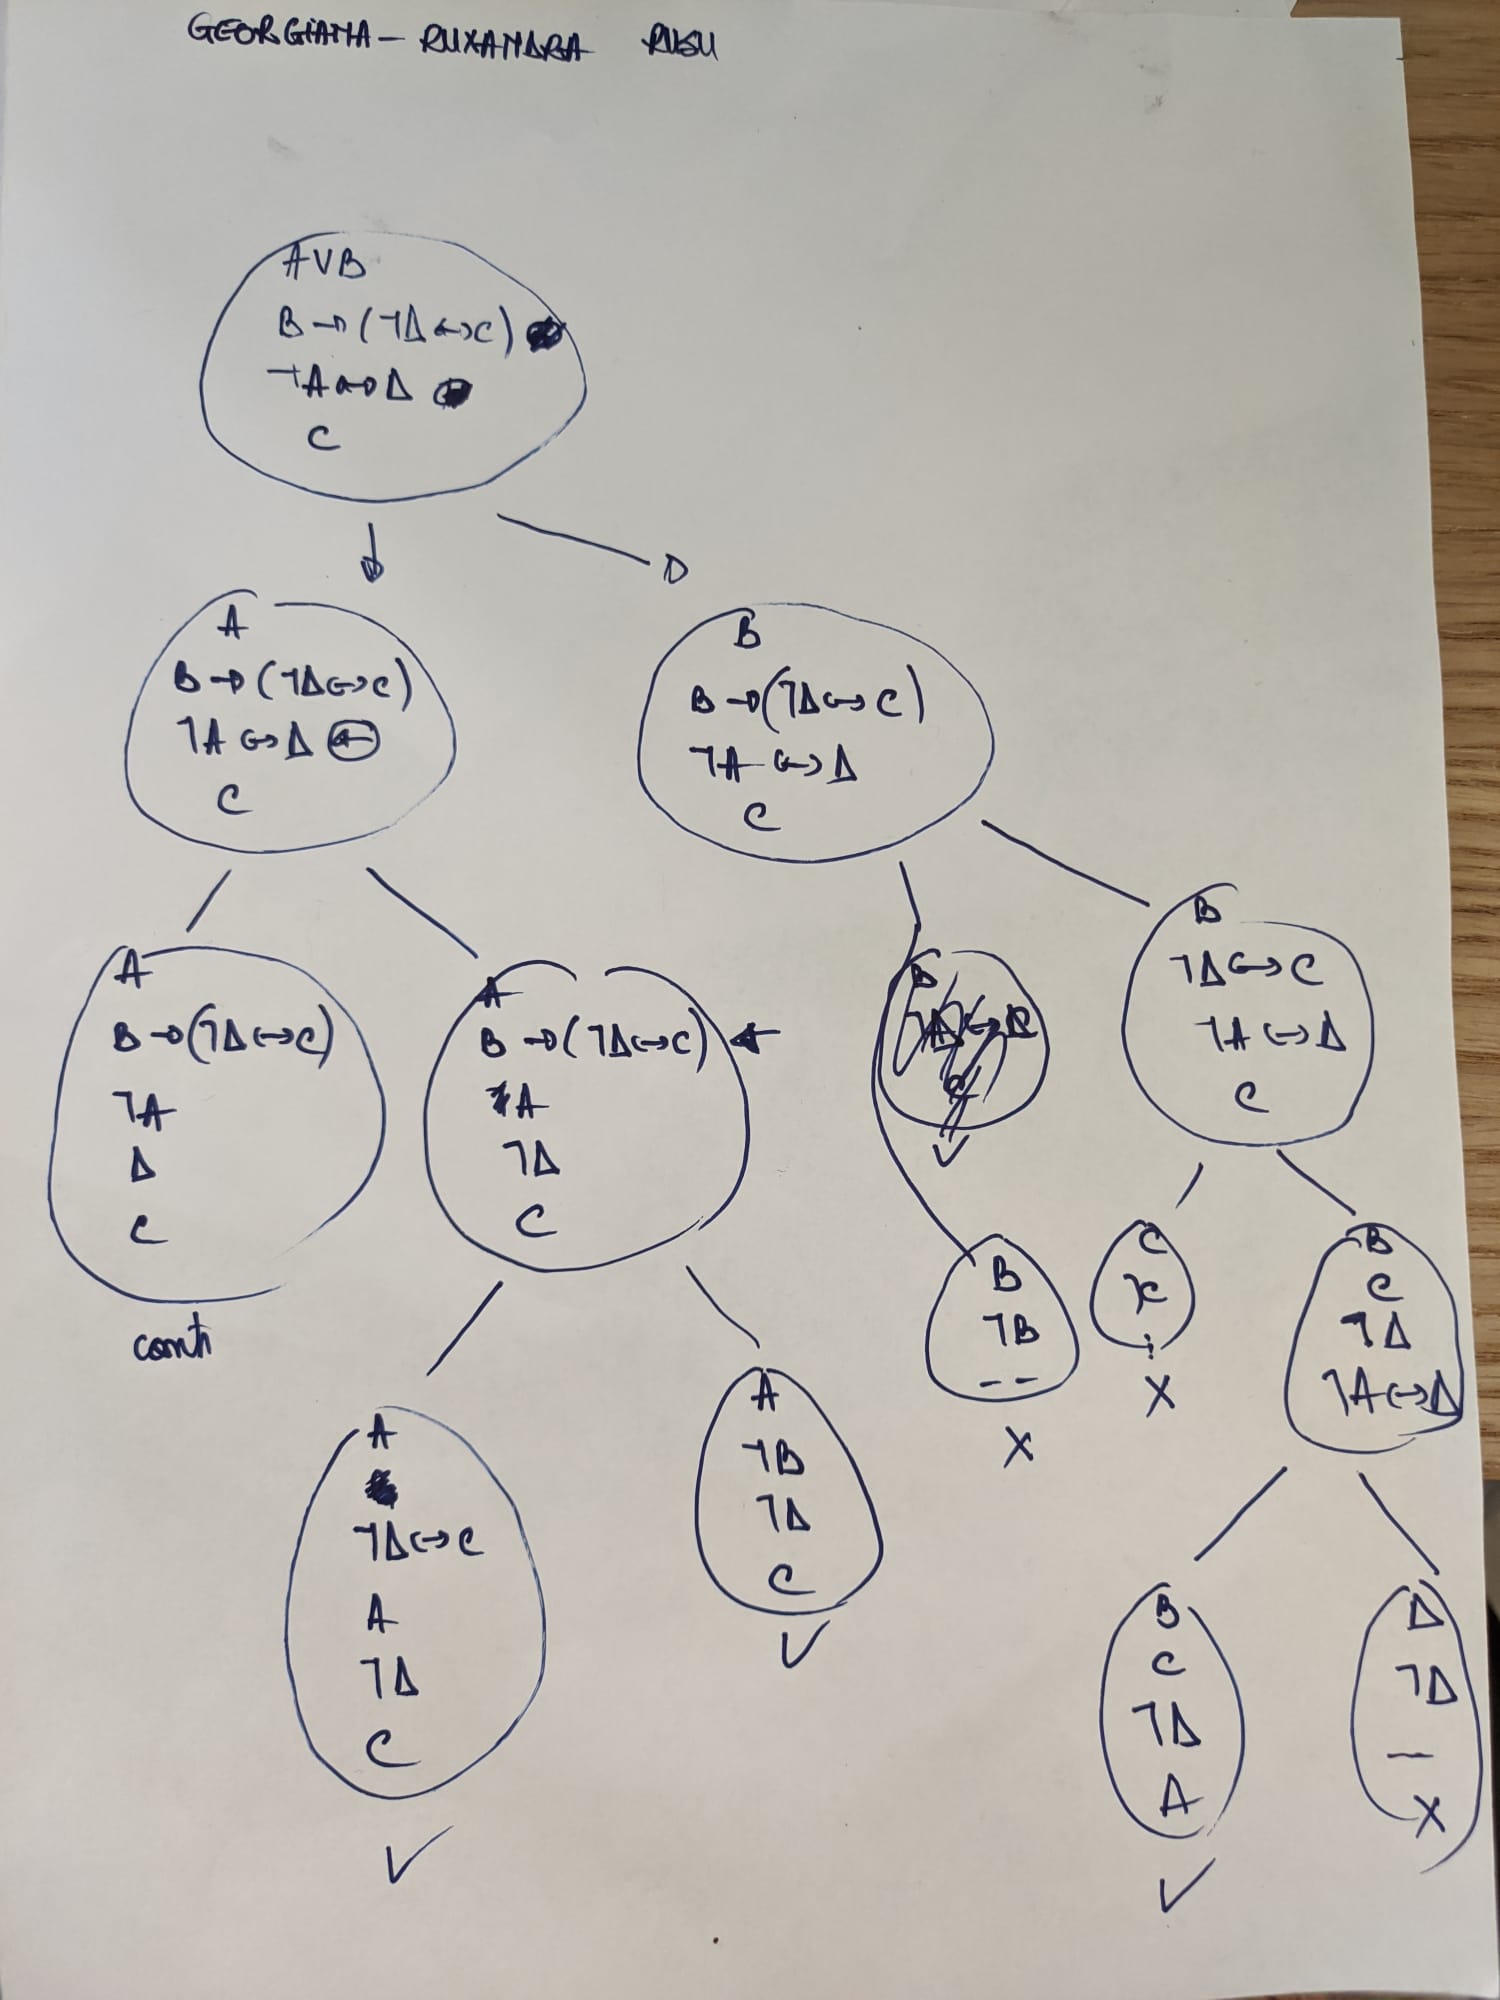 GEORGIANA - RUXANDRA RUSU
A∨B
B → (¬Δ ↔ C)
¬A ↔ Δ
C
A
B → (¬Δ ↔ C)
¬A ↔ Δ ←
C
B
B → (¬Δ ↔ C)
¬A ↔ Δ
C
A
B → (¬Δ ↔ C)
¬A
Δ
C
conti
A
B → (¬Δ ↔ C) ←
A
¬Δ
C
B
¬Δ ↔ C
¬A ↔ Δ
C
B
¬B
--
X
C
¬C
X
B
C
¬Δ
¬A ↔ Δ
A
¬Δ ↔ C
A
¬Δ
C
✓
A
¬B
¬Δ
C
✓
B
C
¬Δ
A
✓
Δ
¬Δ
—
X